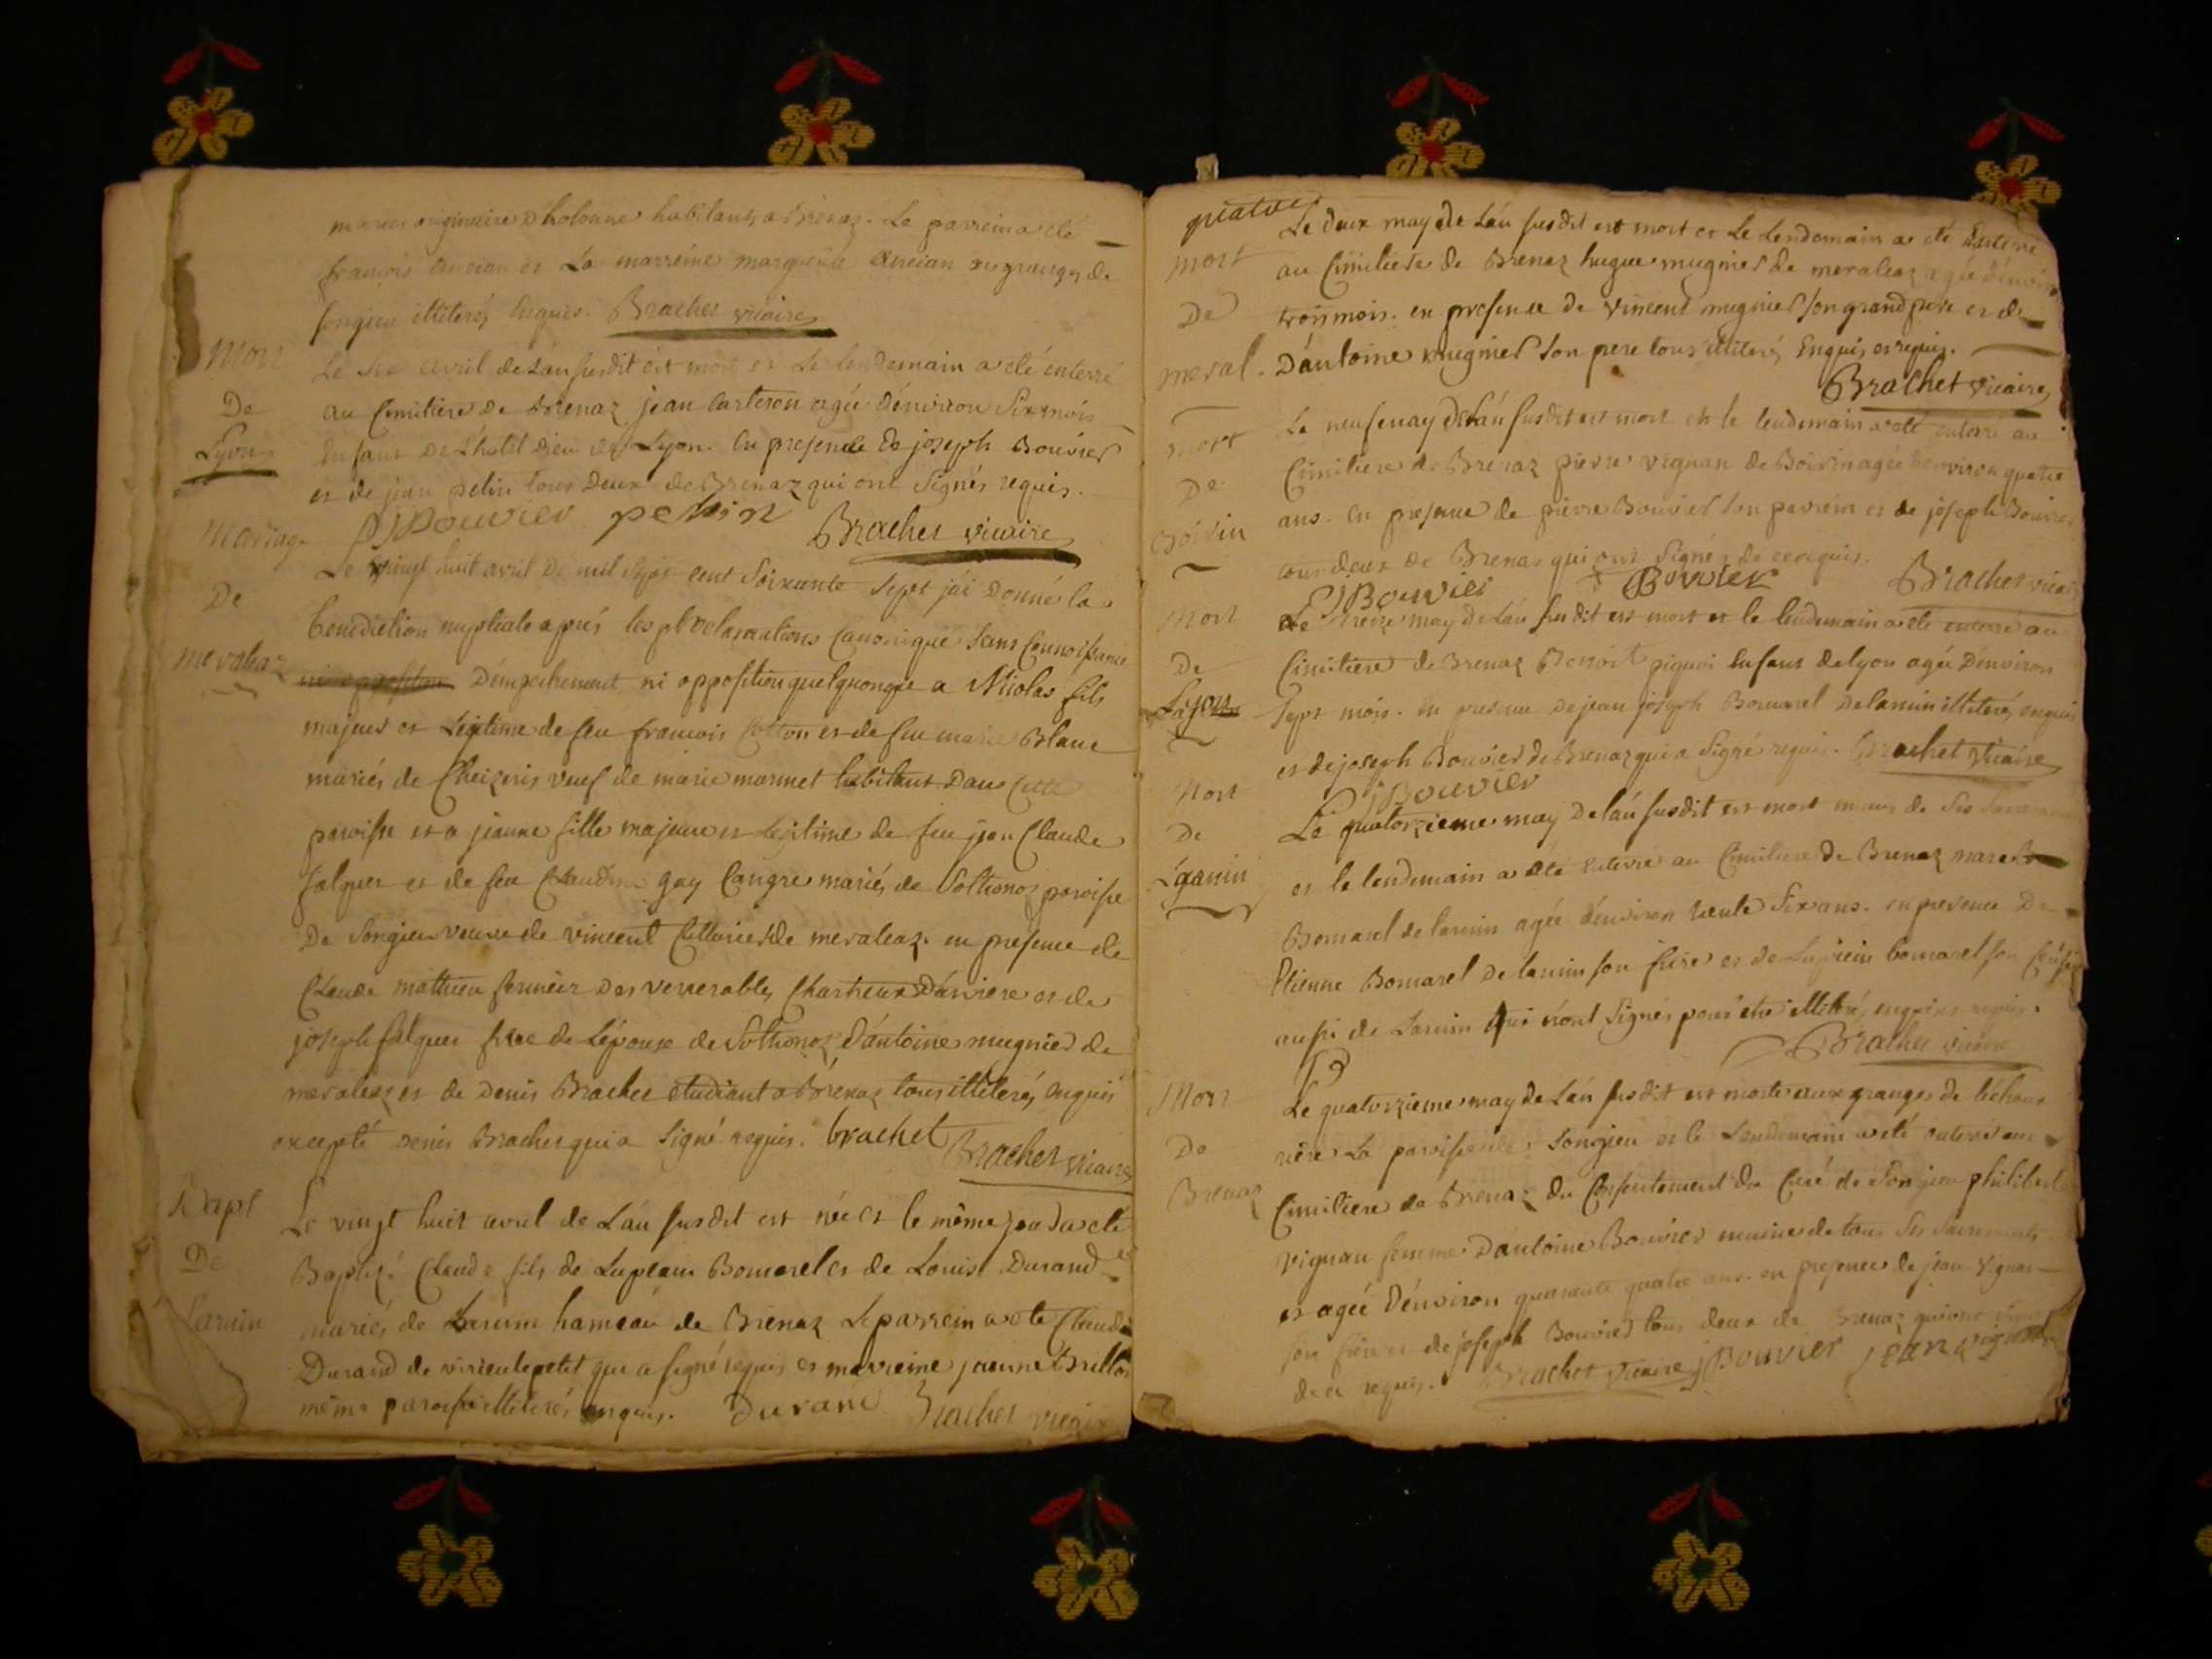 mariés originaire D holonne habitants a Brénaz. Le parrein a eté
francois ancian et La marreine marguerite ancian des granges de
songieu illiterés Enquis. Brachet vicaire
Mort
De
Lyon
Le Six avril de L'án susdit est mort et Le lendemain a eté enterré
au Cimitiere de Brenaz jean Carteron agée d'énviron Six mois
Enfant De L'hotel Dieu de Lyon. En presence de joseph Bouvier
et de jean petin tous Deux de Brenaz qui ont Signés requis.
JBouvier petin Brachet vicaire
Mariag.
De
mevaleaz
Le vingt huit avril De mil Sept cent Soixante Sept jái Donné la
Benediction nuptiale aprés les proclamations Canonique Sans Connoissance
ni opposition D'émpechement ni opposition quelquonque a Nicolas fils
majeur et Légitime de feu francois Cotton et de feu marie Blanc
mariés de Cheizeris veuf de marie marmet habitant Dans Cette
paroisse et a jeanne fille majeure et legitime de feu jean Claude
falquet et de feu Claudine gay Cangre mariés de Sothonoz paroisse
De Songieu veuve de vincent de mevaleaz. en presence de
Claude mathieu fermier des venerables Chartreux D'árviere et de
joseph falquet frere de L'épouse de Sothonoz, D'ántoine mugnier de
mevaleaz et de Denis Brachet etudiant a Brénaz tous illiterés enquis
excepté Denis Brachet qui a Signé requis. brachet
Brachet vicaire
Bapt
De
Larmin
Le vingt huit avril de L'án susdit est né et le même jour a eté
Baptizé Claude fils de Lupicin Bomarel et de Louise Durand
mariés de Larmin hameáu de Brenaz Le parrein a eté Claude
Durand de virieulepetit qui a signé requis et marreine jeanne Brillon
même paroisse illiterés enquis. Durand Brachet vicaire
quatre
mort
De
meval.
Le deux may de L'án susdit est mort et Le Lendemain a eté Enterré
au Cimitiere de Brenaz hugue mugnier de mevaleaz agée d'énviron
trois mois. en presence de vincent mugnier son grand pere et de
D'ántoine mugnier son pere tous illiterés Enquis et requis.
Brachet vicaire
mort
De
Boirin
Le neuf may de L'án susdit est mort et le lendemain a eté enterré au
Cimitiere de Brenaz pierre vignan de Boirin agée d'environ quatre
ans. en presence de pierre Bouvier son parrein et de joseph Bouvier
tous deux de Brenaz qui ont Signés de ce requis.
JBouvier Bouvier Brachet vicaire
Mort
De
Layon
Le treize may de L'án susdit est mort et le lendemain a eté enterré au
Cimitiere de Brenaz Benoit piquoi Enfant de lyon agée D'énviron
Sept mois. En presence de jean joseph Bomarel De larmin illiterés enquis
et de joseph Bouvier de Brenaz qui a Signé requis. Brachet vicaire
JBouvier
Mort
De
Larmin
Le quatorzieme may de L'án susdit est mort muni de Ses
et le lendemain a eté enterré au Cimitiere de Brenaz
Bomarel de larmin agée d'énviron trente Six ans. en presence De
Etienne Bomarel de larmin son frere et de Lupicin bomarel son
aussi de Larmin qui n'ónt Signés pour etre illiterés enquis et requis.
Brachet vicaire
Mort
De
Brenaz
Le quatorzieme may de L'án susdit est morte aux granges de
riere La paroisse de Songieu et le Lendemain a eté enterré au
Cimitiere de Brenaz du Consentement du Curé de Songieu philiberte
vignan femme D'antoine Bouvier munie de tous Ses Sacrements
et agée D'énviron quarante quatre ans. en presence de jean vignan
son frere et de joseph Bouvier tous deux de Brenaz qui ont signé
de ce requis. Brachet vicaire JBouvier jean vignan